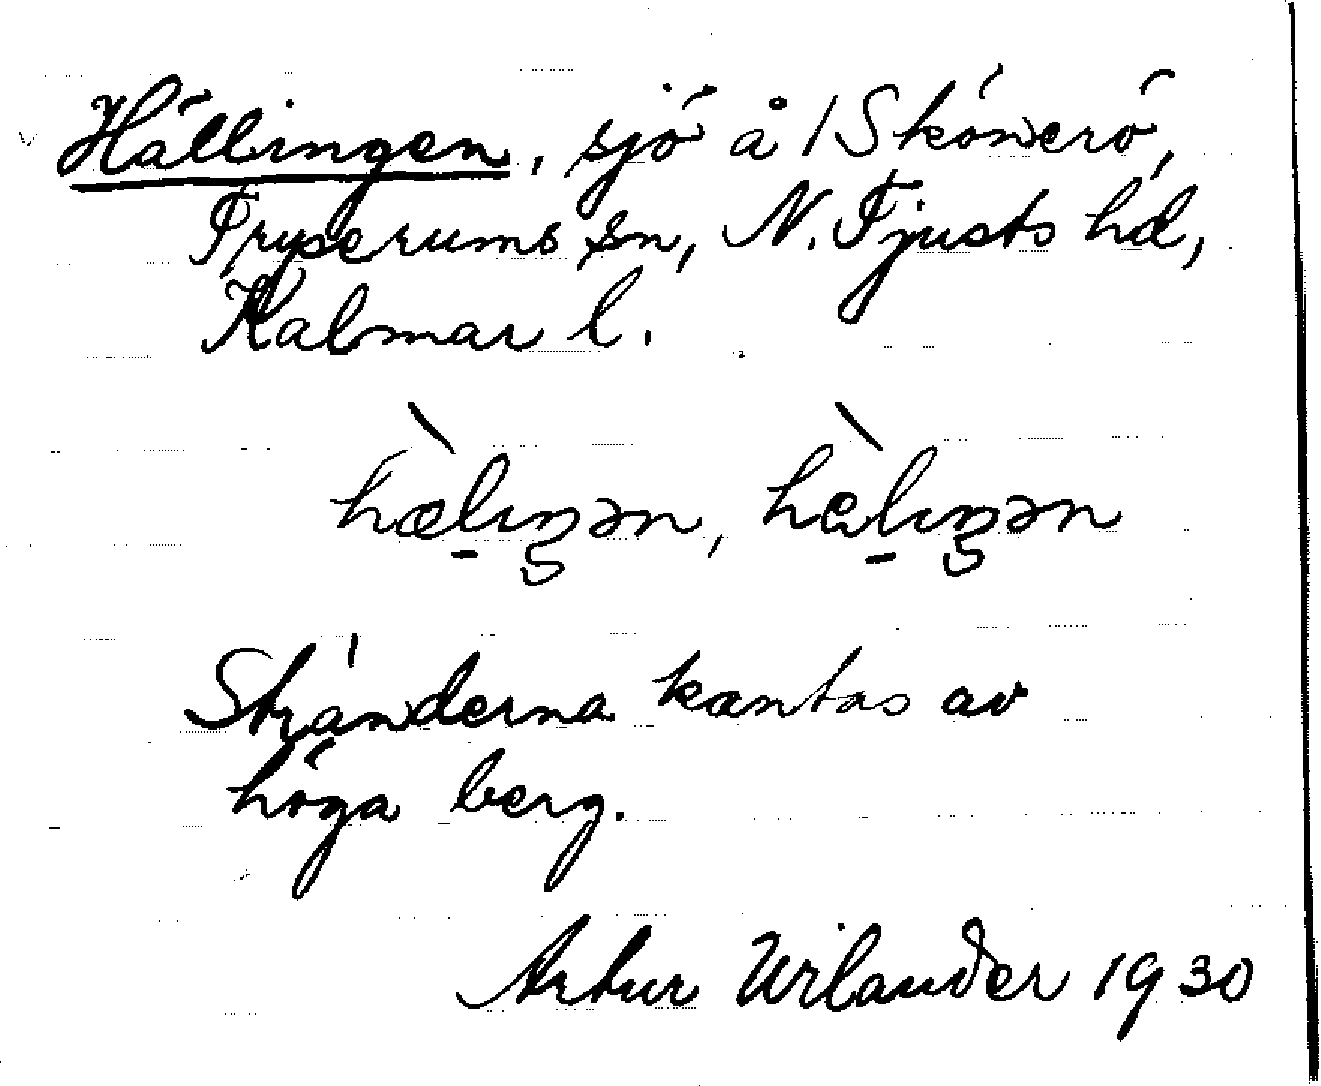 Hällingen, sjö å / Skönerö,
Tryserums sn, N. Tjusts hd,
Kalmar l.
hæ̀lıŋən, hèlıŋən
Stränderna kantas av
höga berg.
Artur Wilander 1930